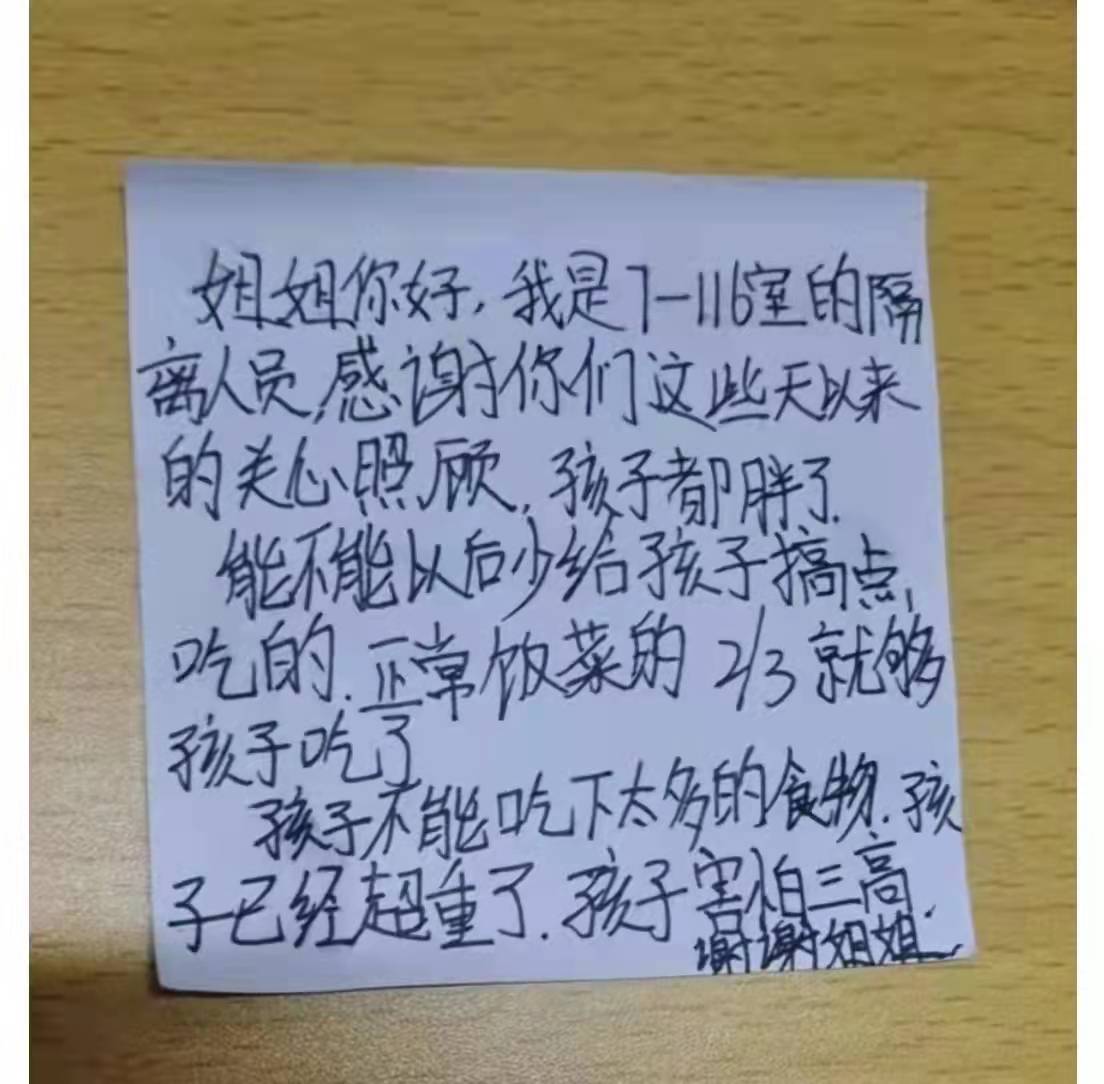 姐姐你好,我是7-116室的隔
离人员,感谢你们这些天以来
的关心照顾,孩子都胖了.
能不能以后少给孩子搞点
吃的.正常饭菜的 2/3 就够
孩子吃了
孩子不能吃下太多的食物.孩
子已经超重了.孩子害怕三高.
谢谢姐姐.